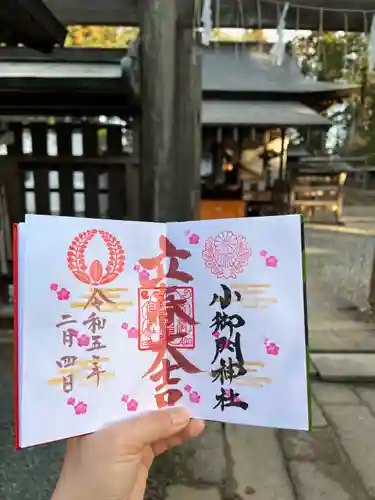 小御門神社
立春大吉
令和五年
二月四日